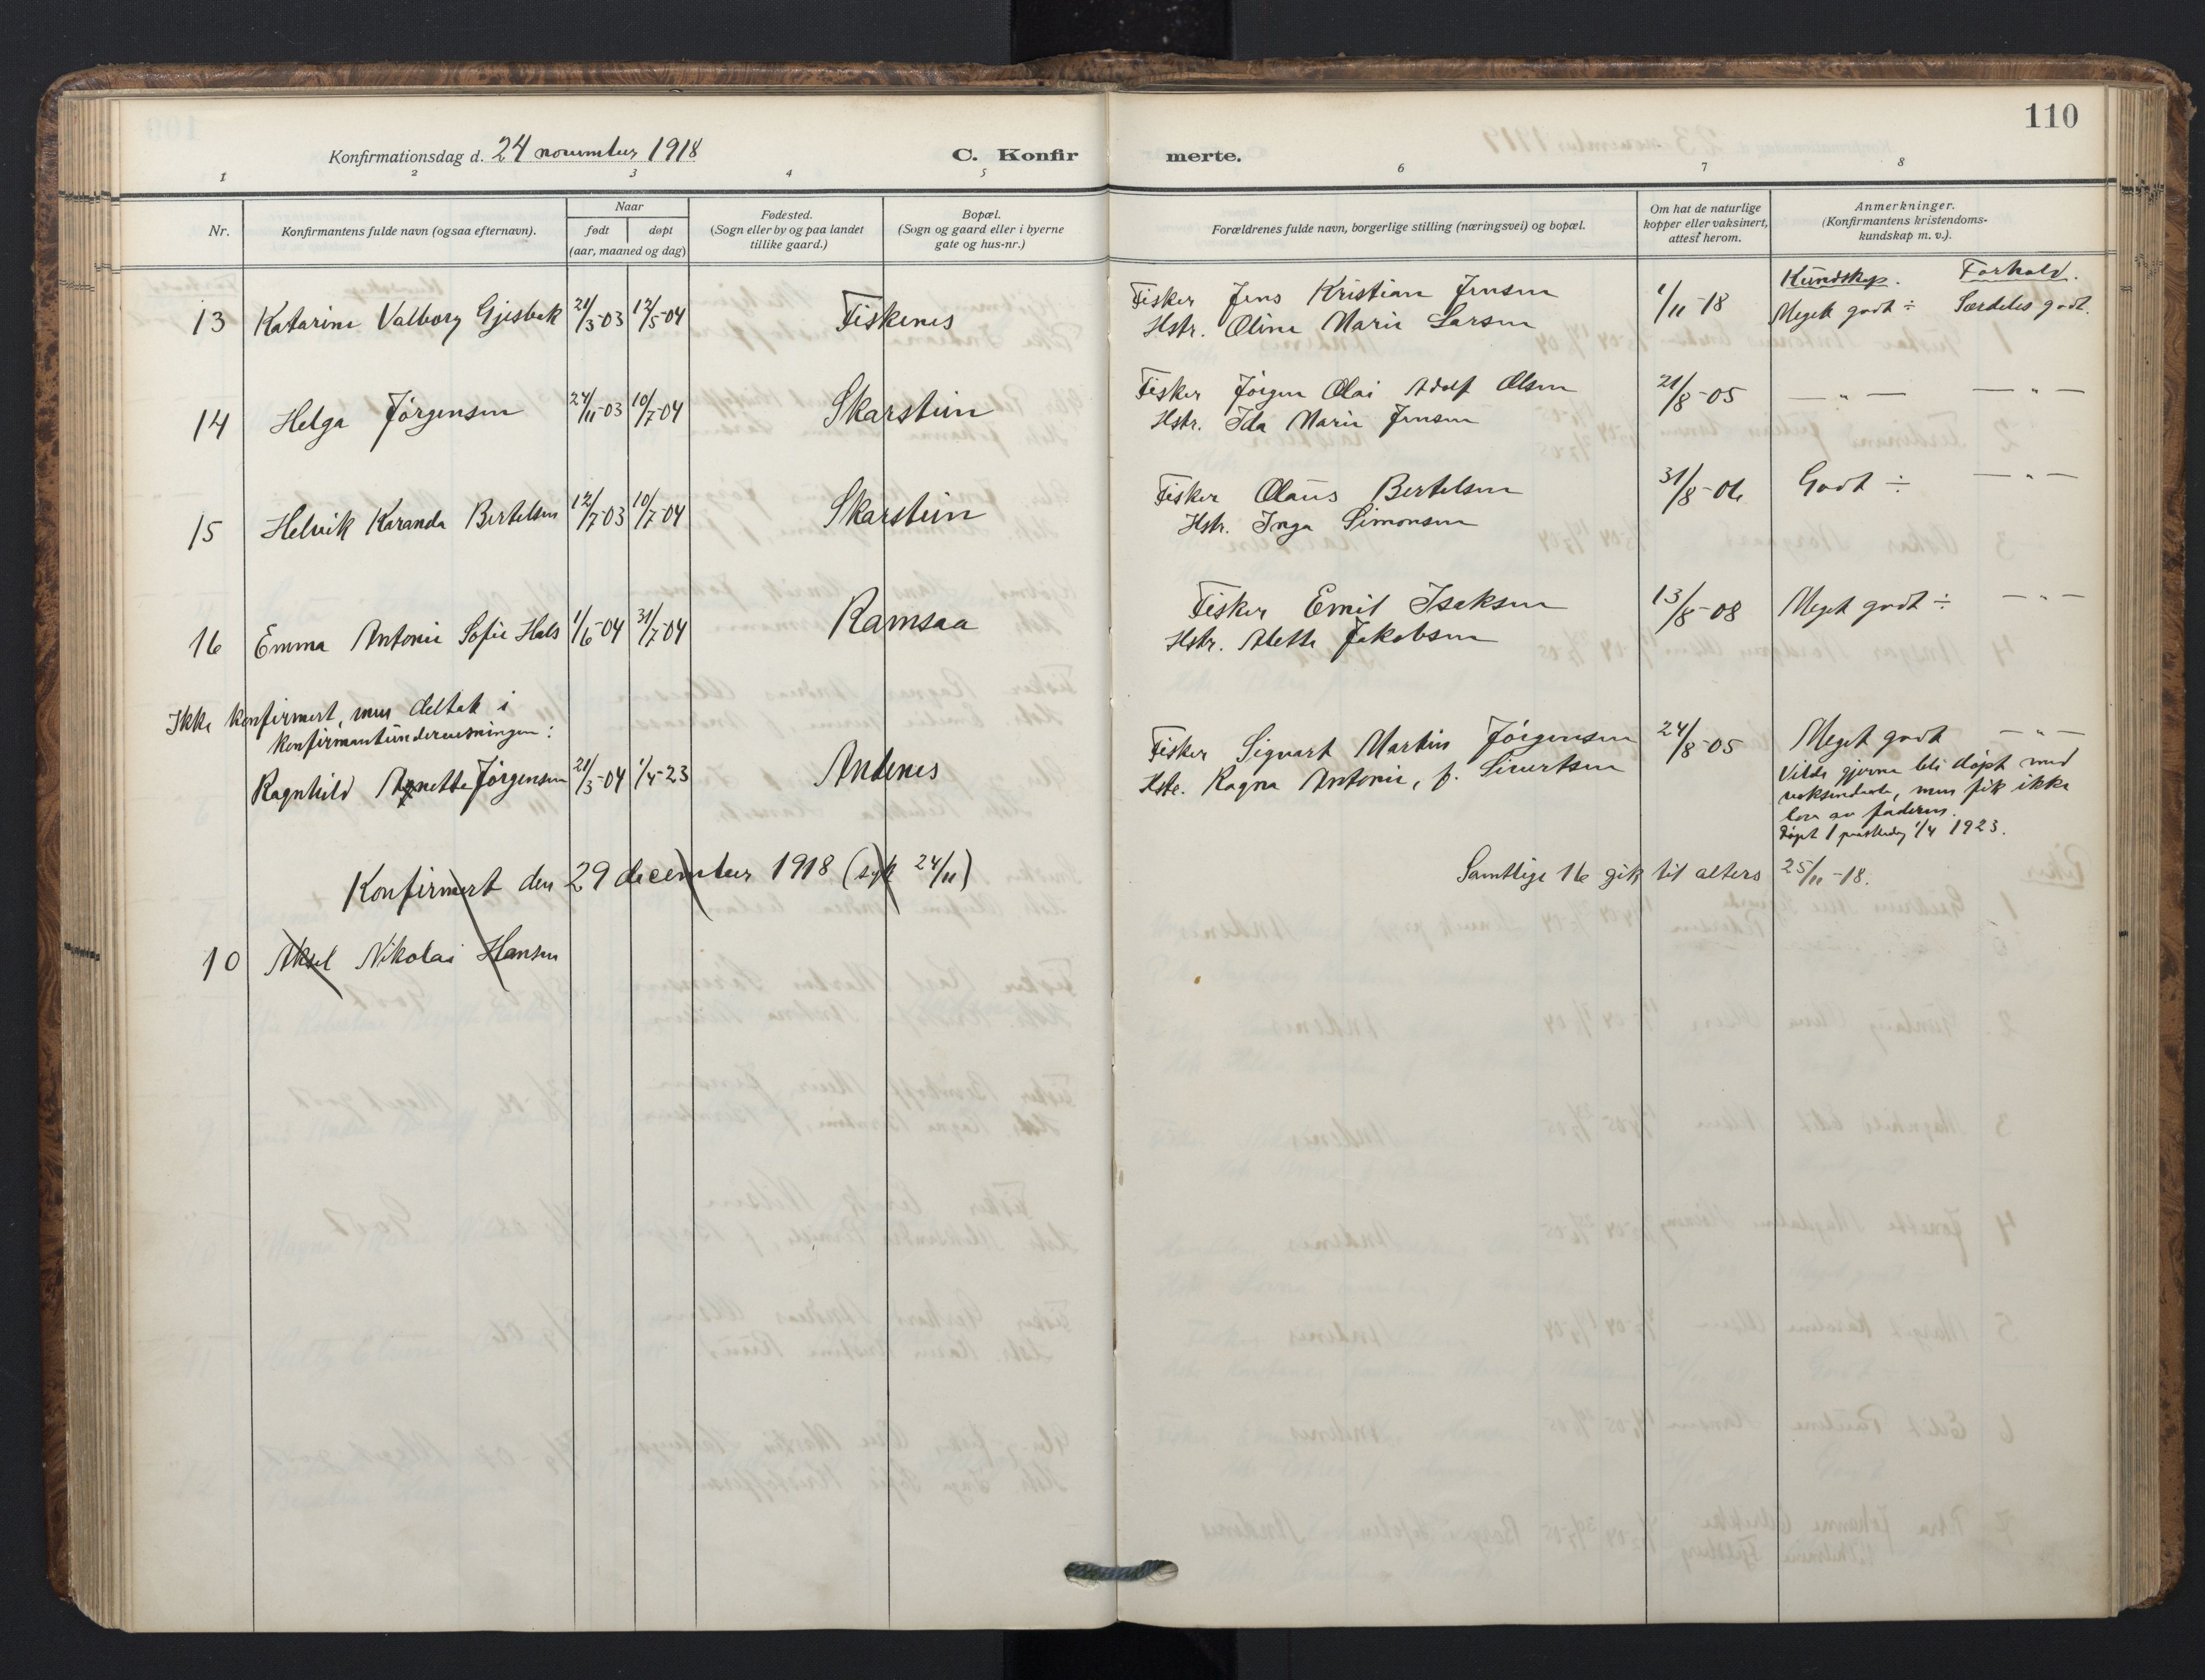 110
Konfirmationsdag d. 24 november 1918
C. Konfir merte.
1 2 3 4 5 6 7 8
Nr.
Konfirmantens fulde navn (ogsaa efternavn).
Naar
født døpt
(aar, maaned og dag)
Fødested.
(Sogn eller by og paa landet
tillike gaard.)
Bopæl.
(Sogn og gaard eller i byerne
gate og hus-nr.)
Forældrenes fulde navn, borgerlige stilling (næringsvei) og bopæl.
Om hat de naturlige
kopper eller vaksinert,
attest herom.
Anmerkninger.
(Konfirmantens kristendoms-
kundskap m. v.).
Kundskap. Forhold.
13 Katarine Valborg Gjesbak 21/3-03 12/5-04 Fiskenes Fisker Jens Kristian Jensen 1/11-18 Meget godt ÷ Særdeles godt.
Hstr. Oline Marie Larsen
14 Helga Jørgensen 24/11-03 10/7-04 Skarstein Fisker Jørgen Olai Adolf Olsen 21/8-05 — „ — — „ —
Hstr. Ida Marie Jensen
15 Helvik Karanda Bertelsen 12/7-03 10/7-04 Skarstein Fisker Olaus Bertelsen 31/8-06 Godt ÷ — „ —
Hstr. Inga Simonsen
16 Emma Antonie Sofie Hals 1/6-04 31/7-04 Ramsaa Fisker Emil Isaksen 13/8-08 Meget godt ÷ — „ —
Hstr. Aletta Jakobsen
Ikke konfirmert, men deltok i
konfirmantundervisningen:
Ragnhild Annette Jørgensen 21/3-04 1/4-23 Andenes Fisker Sigvart Martin Jørgensen 24/8-05 Meget godt — „ —
Hstr. Ragna Antonie, f. Sivertsen
Vilde gjerne bli døpt med
voksendaab, men fik ikke
lov av faderen.
Døpt 1 paaskedag 1/4 1923.
Konfirmert den 29 december 1918 (syk 24/11)
Samtlige 16 gik til alters 25/11-18.
10 Aksel Nikolai Hansen